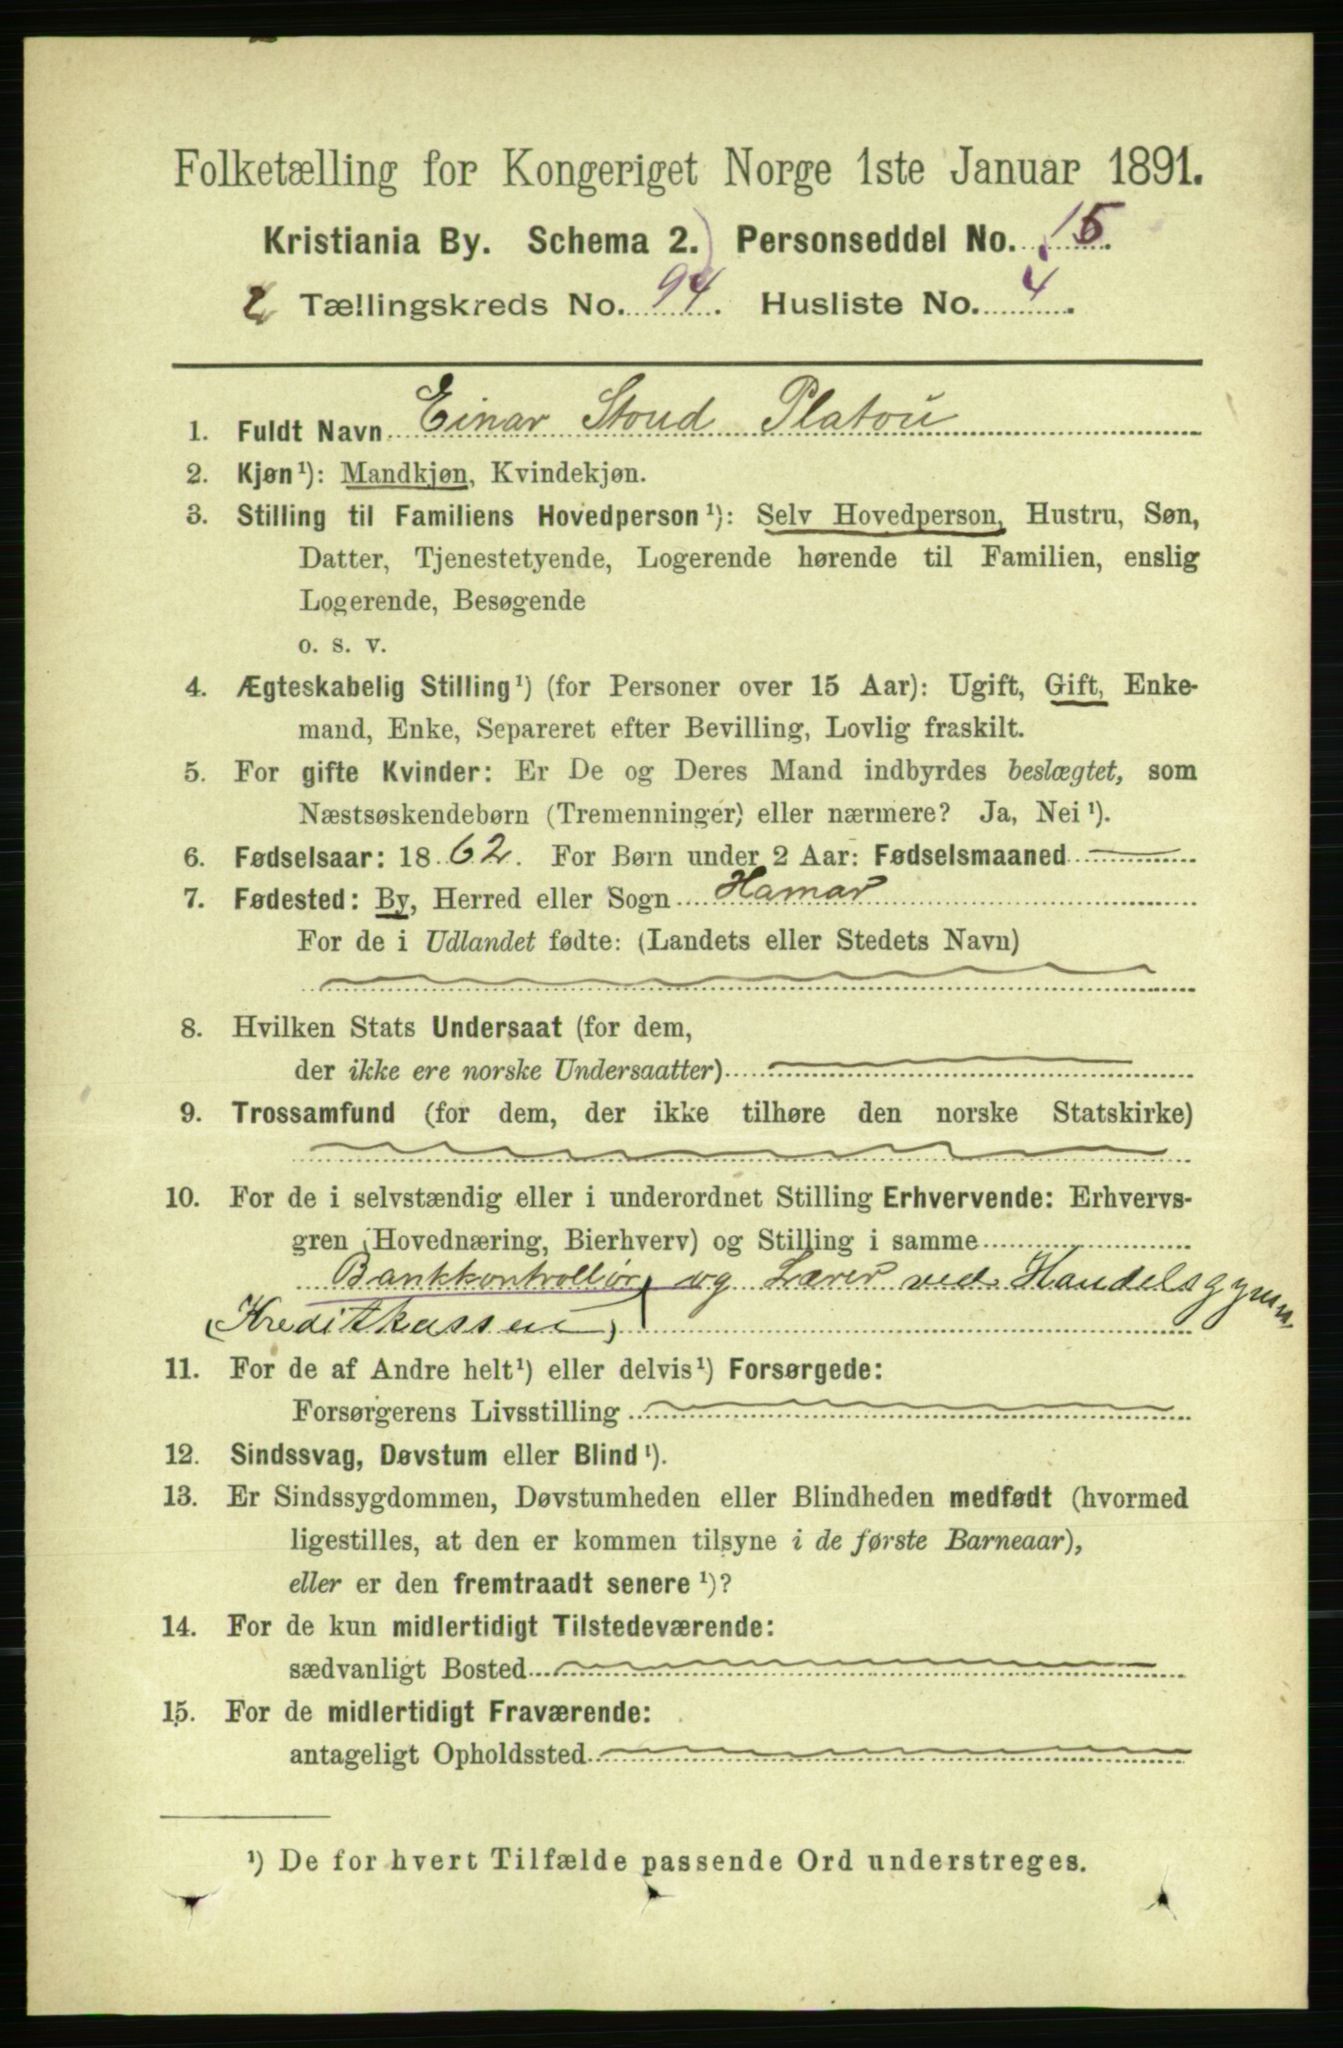 Folketælling for Kongeriget Norge 1ste Januar 1891.
Kristiania By. Schema 2. Personseddel No. 15.
2 Tællingskreds No. 94. Husliste No. 4.
1. Fuldt Navn Einar Stoud Platou
2. Kjøn¹): Mandkjøn, Kvindekjøn.
3. Stilling til Familiens Hovedperson¹): Selv Hovedperson, Hustru, Søn,
Datter, Tjenestetyende, Logerende hørende til Familien, enslig
Logerende, Besøgende
o. s. v.
4. Ægteskabelig Stilling¹) (for Personer over 15 Aar): Ugift, Gift, Enke-
mand, Enke, Separeret efter Bevilling, Lovlig fraskilt.
5. For gifte Kvinder: Er De og Deres Mand indbyrdes beslægtet, som
Næstsøskendebørn (Tremenninger) eller nærmere? Ja, Nei¹).
6. Fødselsaar: 1862. For Børn under 2 Aar: Fødselsmaaned
7. Fødested: By, Herred eller Sogn Hamar
For de i Udlandet fødte: (Landets eller Stedets Navn)
8. Hvilken Stats Undersaat (for dem,
der ikke ere norske Undersaatter)
9. Trossamfund (for dem, der ikke tilhøre den norske Statskirke)
10. For de i selvstændig eller i underordnet Stilling Erhvervende: Erhvervs-
gren (Hovednæring, Bierhverv) og Stilling i samme
Bankkontrollør og Lærer ved Handelsgymn.
(Kreditkassen)
11. For de af Andre helt¹) eller delvis¹) Forsørgede:
Forsørgerens Livsstilling
12. Sindssvag, Døvstum eller Blind¹).
13. Er Sindssygdommen, Døvstumheden eller Blindheden medfødt (hvormed
ligestilles, at den er kommen tilsyne i de første Barneaar),
eller er den fremtraadt senere¹)?
14. For de kun midlertidigt Tilstedeværende:
sædvanligt Bosted
15. For de midlertidigt Fraværende:
antageligt Opholdssted
¹) De for hvert Tilfælde passende Ord understreges.